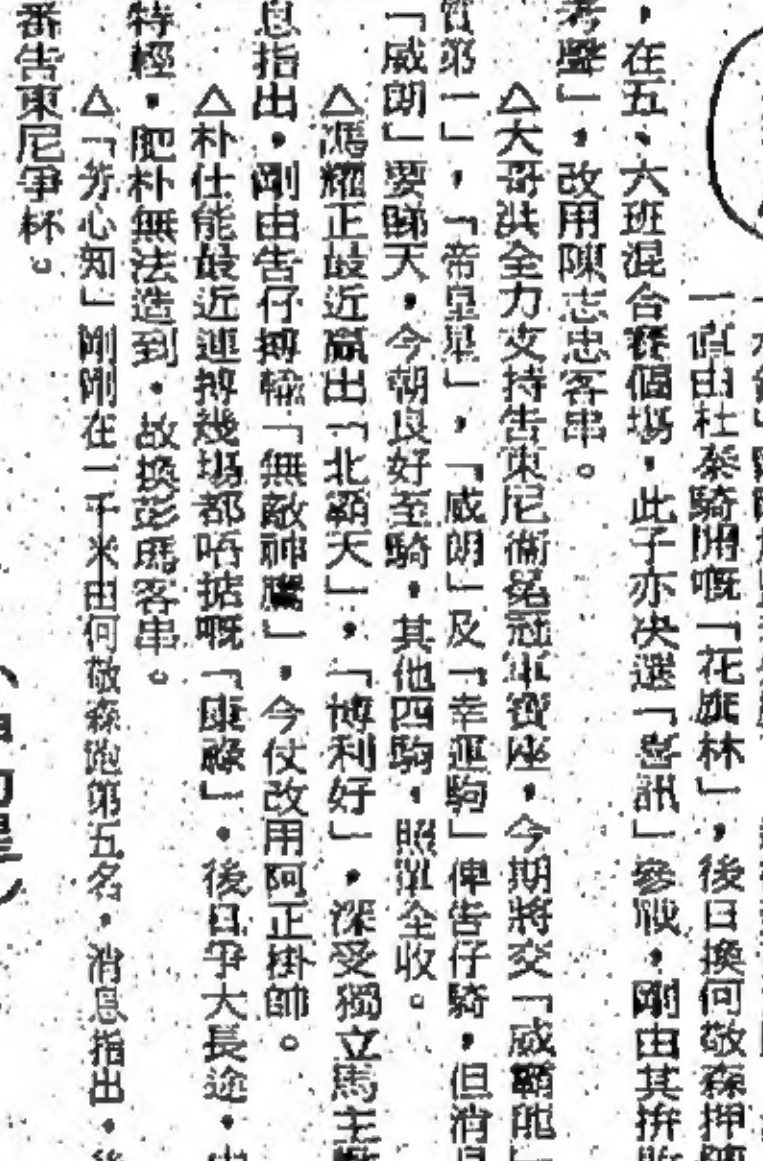 一直由杜泰騎開嘅「花旗林」，後日換何敬森押陣
，在五、六班混合賽個場，此子亦決選「喜訊」參戰，剛由其拚敗
考聲」，改用陳志忠客串。
△大哥洪全力支持告東尼衞冕冠軍寶座，今期將交「威霸龍」
質第一」，「帝皇星」，「威朗」及「幸運駒」俾告仔騎，但消息
「威朗」要睇天，今朝良好至騎，其他四駒，照單全收。
△馮耀正最近贏出「北霸天」，「博利好」，深受獨立馬主
息指出，剛由告仔搏輸「無敵神鷹」，今仗改用阿正掛帥。
△朴仕能最近連搏幾場都唔掂嘅「康祿」，後日爭大長途，
特輕，肥朴無法造到，故換彭馬客串。
△「芳心知」剛剛在一千米由何敬森跑第五名，消息指出，
番告東尼爭杯。